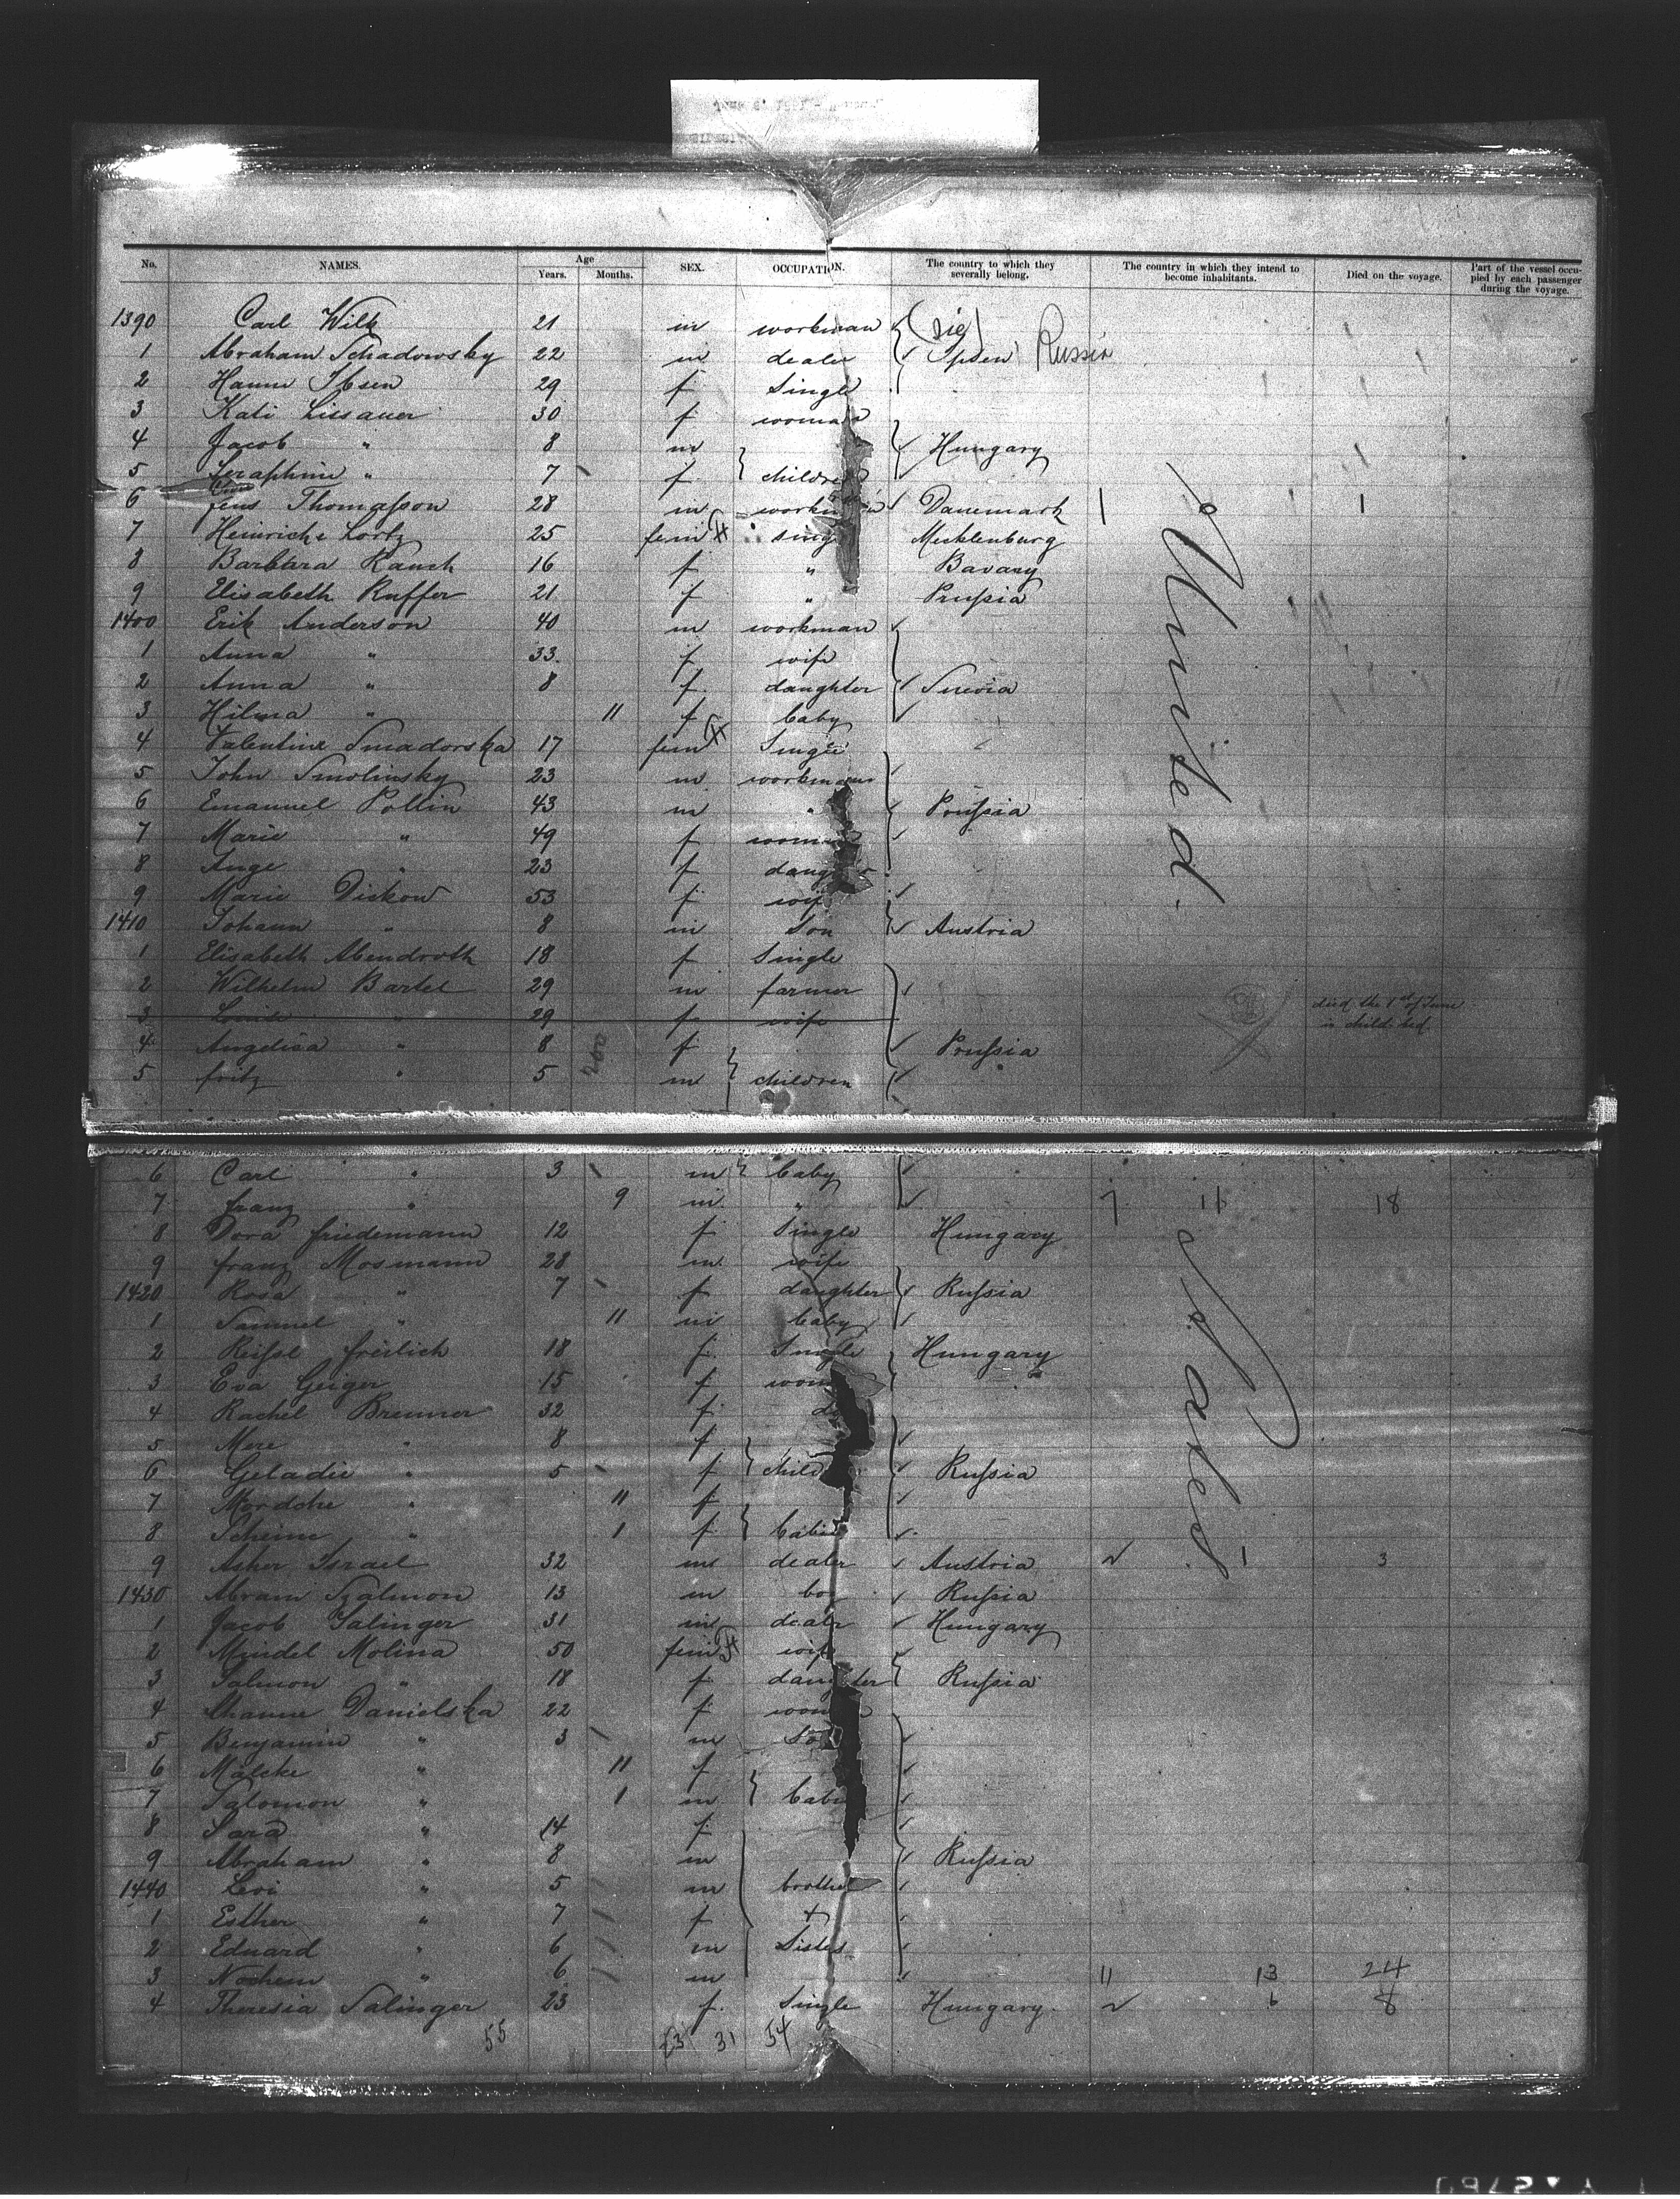 No. NAMES. Age Years. Months. SEX. OCCUPATION. The country to which they severally belong. The country in which they intend to become inhabitants. Died on the voyage. Part of the vessel occupied by each passenger during the voyage.
1390 Carl Wilk 21 m workman
1 Abraham Schadowsky 22 m dealer Russia
2 Hanne Ibsen 29 f Single
3 Kati Lissauer 30 f woman
4 Jacob " 8 m Hungary
5 Seraphine " 7 f children
6 Jens Thomaſson 28 m workman Danemark 1
7 Heinriche Lortz 25 fem single Mecklenburg
8 Barbara Rauch 16 f " Bavary
9 Elisabeth Ruffer 21 f " Pruſsia
1400 Erik Anderson 40 m workman
1 Anna " 33 f wife
2 Anna " 8 f daughter Suecia
3 Hilma " 11 f baby
4 Valentine Smadorska 17 fem Single
5 John Smolinsky 23 m workman
6 Emanuel Pollin 43 m " Pruſsia
7 Marie " 49 f woman
8 Auge " 23 f daughter
9 Marie Diskow 53 f wife
1410 Johann " 8 m Son Austria
1 Elisabeth Abendroth 18 f Single
2 Wilhelm Bartel 29 m farmer
3 Louise " 29 f wife died the 1st of June in childbed
4 Angelica " 8 f Pruſsia
5 fritz " 5 m children
200
United
6 Carl " 3 m baby
7 franz " 9 m " 7 11 18
8 Dora friedemann 12 f Single Hungary
9 franz Mosmann 28 m wife
1420 Rosa " 7 f daughter Ruſsia
1 Samuel " 11 m baby
2 Reiſsel freilich 18 f Single Hungary
3 Eva Geiger 15 f woman
4 Rachel Brenner 32 f do
5 Mere " 8 f
6 Geladie " 5 f child Ruſsia
7 Mordche " 11 f
8 Scheine " 1 f babies
9 Asher Israel 32 m dealer Austria 1 3
1430 Abram Szalmon 13 m boy Ruſsia
1 Jacob Salinger 31 m dealer Hungary
2 Mindel Molina 50 fem wife
3 Salmon " 18 f daughter Ruſsia
4 Channe Danielska 22 f woman
5 Benjamin " 3 m Son
6 Malcke " 11 f
7 Salomon " 1 m babies
8 Sara " 14 f
9 Abraham " 8 m Ruſsia
1440 Levi " 5 m brother
1 Esther " 7 f +
2 Eduard " 6 m Sisters
3 Nochem " 6 m 11 13 24
4 Theresia Salinger 23 f. Single Hungary. 6 8
States
55 23 31 54